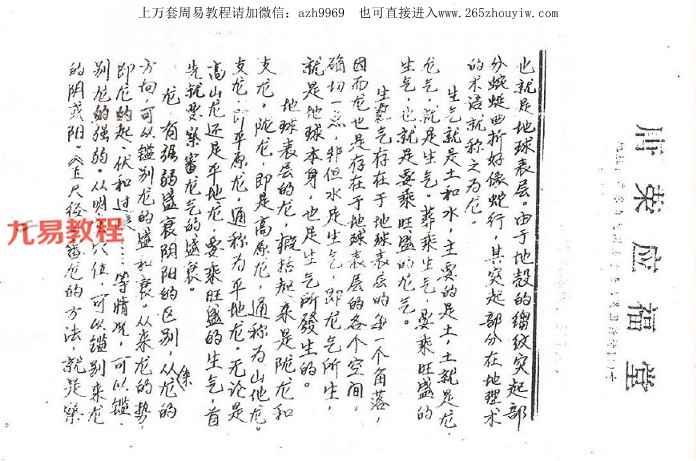 上万套周易教程请加微信：azh9969　也可直接进入www.265zhouyiw.com
荣应福堂
也就是地球表层。由于地壳的褶纹突起部
分蜿蜒曲折好像蛇行，其突起部分在地理术
的术语就称之为龙。
生气就是土和水，主要的是土，土就是龙，
龙气，就是生气，葬乘生气，要乘旺盛的
生气，也就是要乘旺盛的龙气。
生气存在于地球表层的每一个角落，
因而龙也是存在于地球表层的各个空间，
确切一点，非但水是生气，即龙气所生，
就是地球本身，也是生气所發生的。
地球表层的龙，概括起来是陇龙和
支龙，陇龙，即是高原龙，通称为山地龙。
支龙，即平原龙，通称为平地龙，无论是
高山龙还是平地龙，要乘旺盛的生气，首
先就要察审龙气的盛衰。
龙，有强弱盛衰阴阳的区别，从龙的来
方向，可以鑑别龙的盛和衰。从来龙的势，
即龙的起、伏和过……等情况，可以鑑
别龙的强弱。从明 位，可以鑑别来龙
的阴或阳。《玉尺经 龙的方法，就是
九易教程